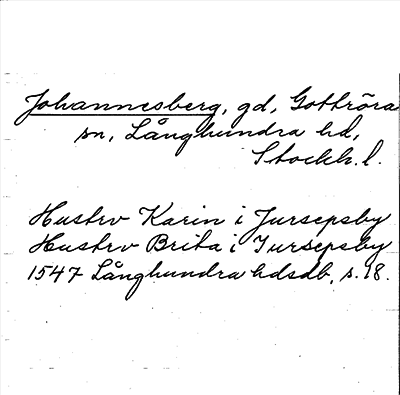 Johannesberg, gd, Gottröra
sn, Långhundra hd,
Stockh. l.
Hustrv Karin i Jursepsby
Hustrv Brita i Jursepsby
1547 Långhundra hdsdb, s. 18.